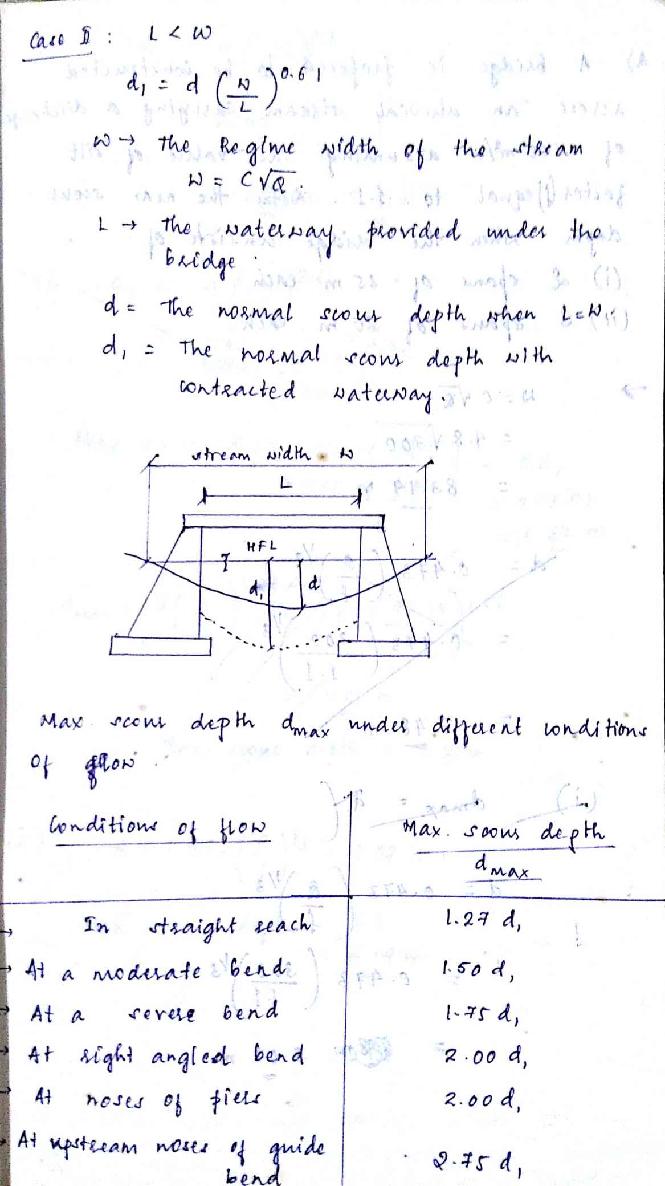 Case II : L < W
d₁ = d (W/L)^0.61
W → The Regime width of the stream
W = C√Q.
L → The waterway provided under the
bridge.
d = The normal scour depth when L = W.
d₁ = The normal scour depth with
contracted waterway.
stream width W
L
HFL
d₁ d
Max scour depth dmax under different conditions
of flow.
Conditions of flow
Max. scour depth
dmax
In straight reach 1.27 d₁
At a moderate bend 1.50 d₁
At a severe bend 1.75 d₁
At right angled bend 2.00 d₁
At noses of piers 2.00 d₁
At upstream noses of guide
bend 2.75 d₁